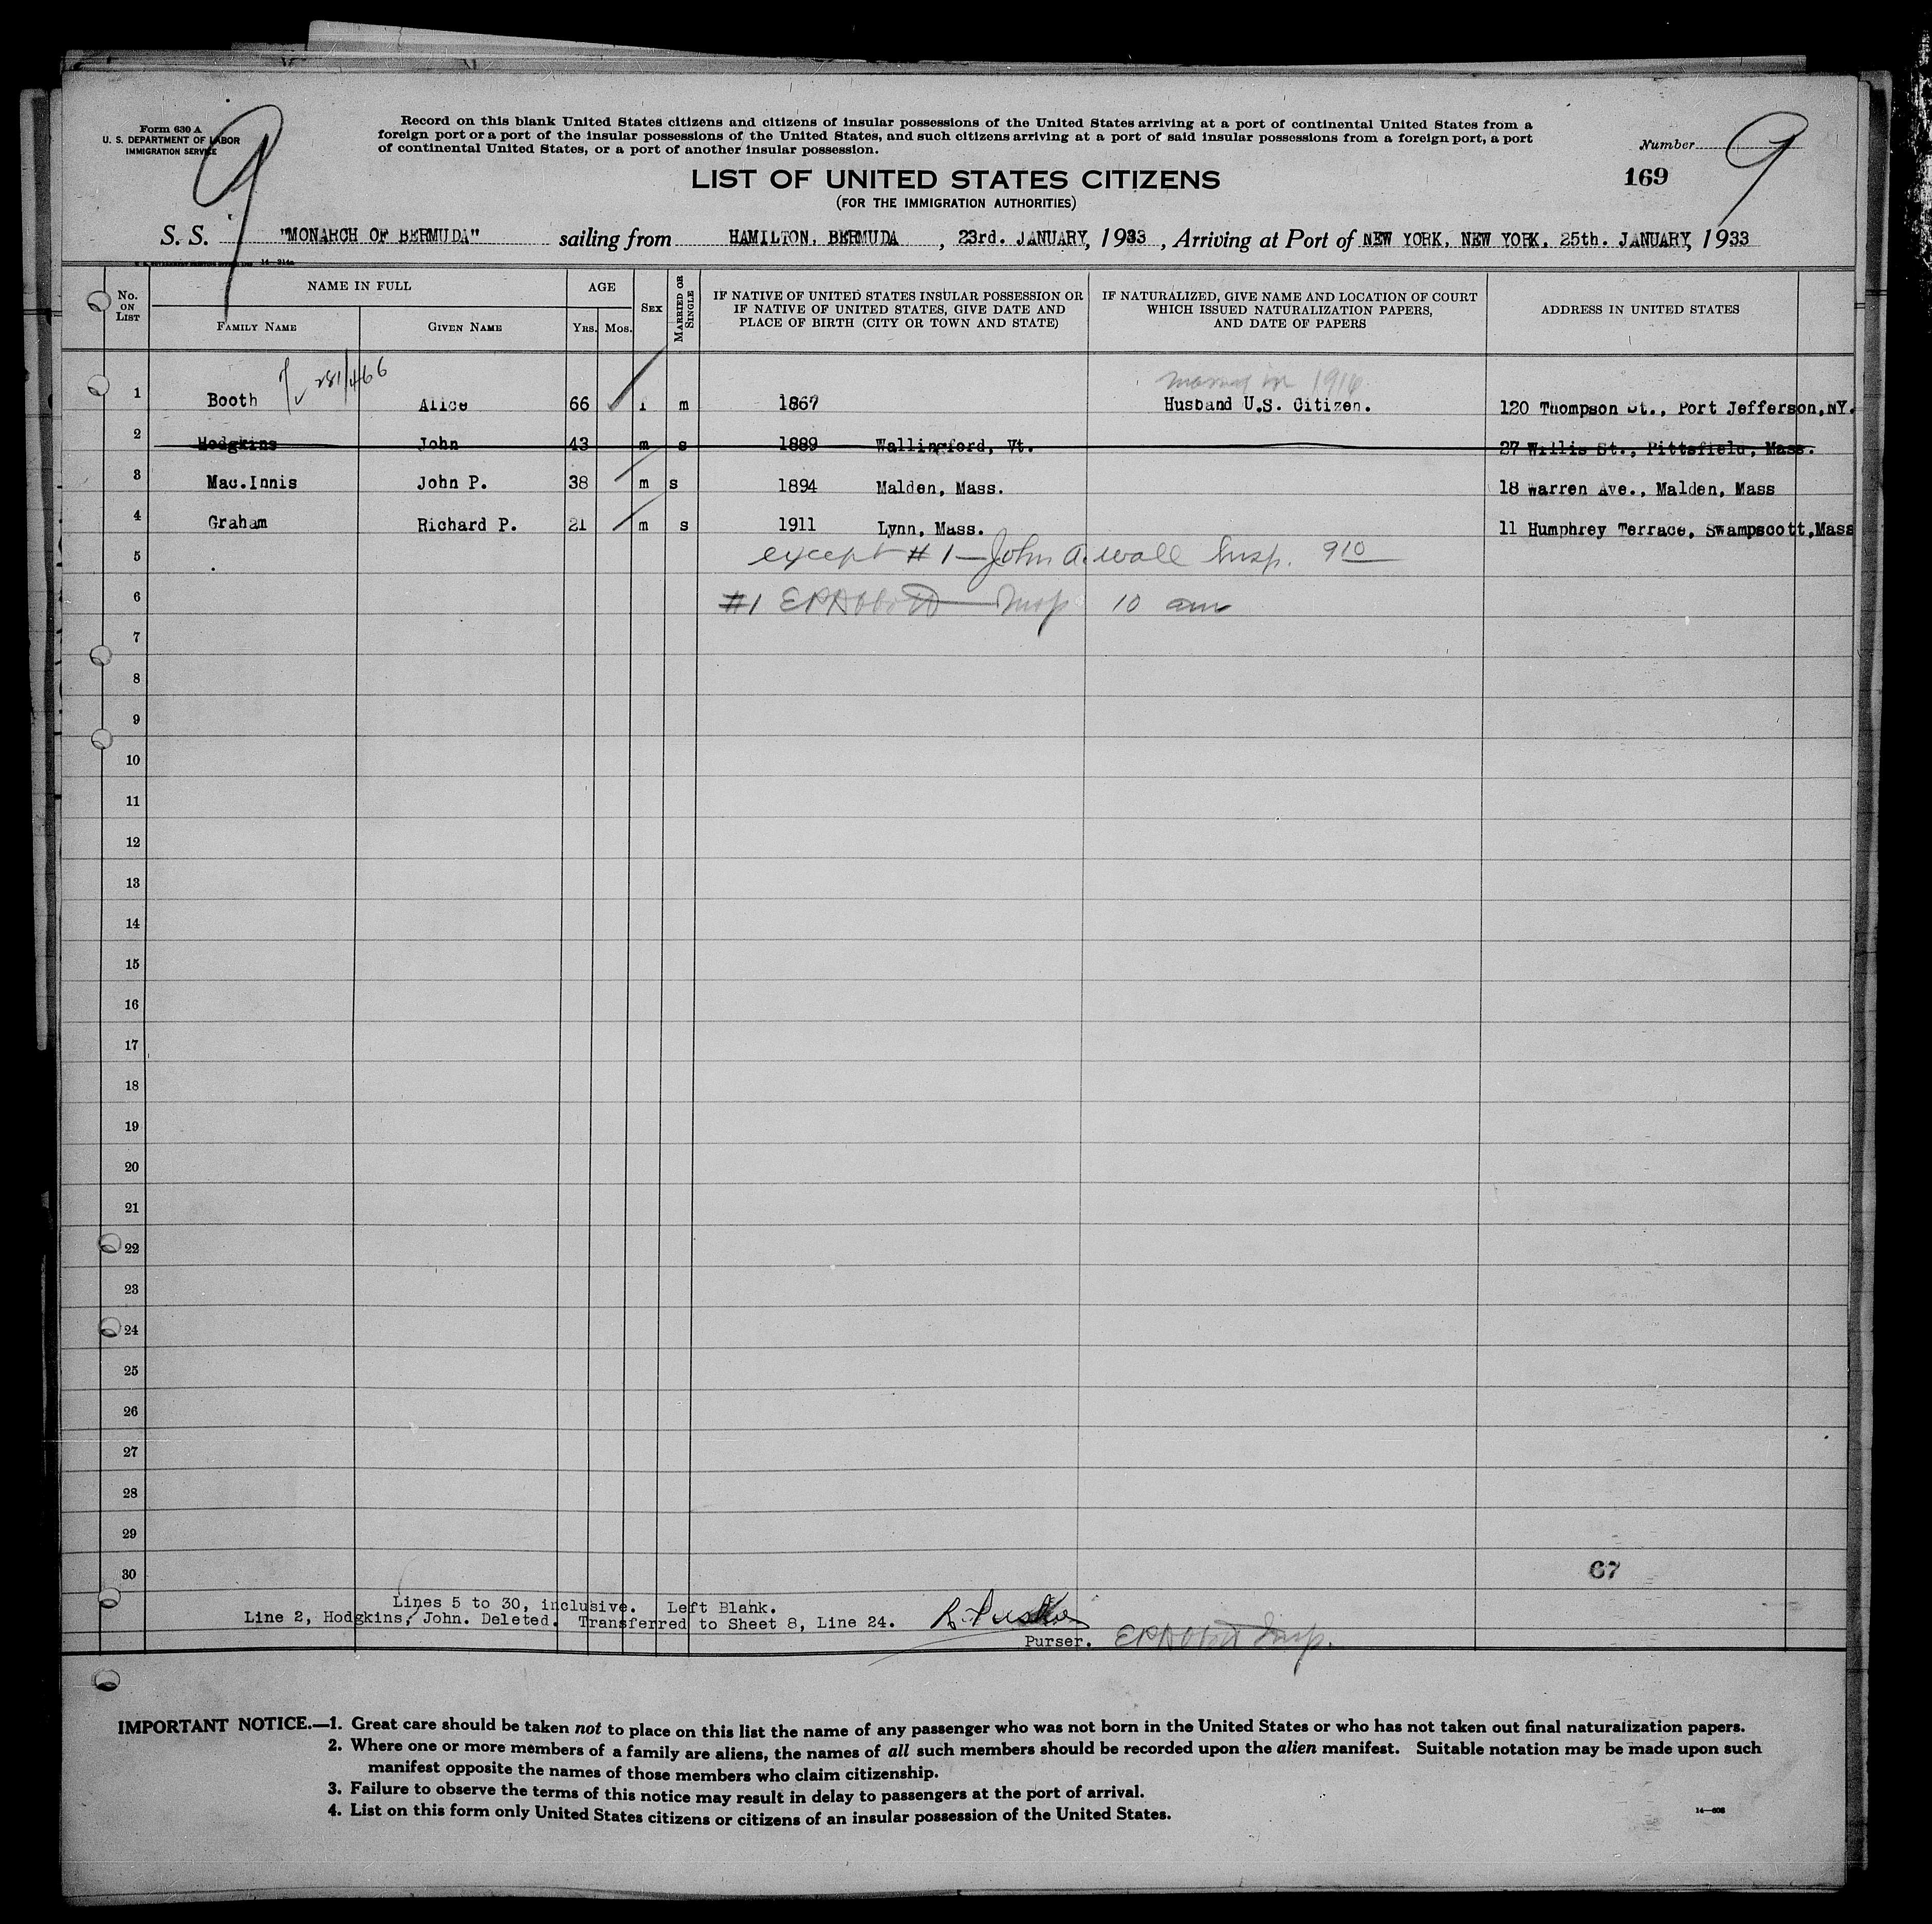 Form 630 A
U. S. DEPARTMENT OF LABOR
IMMIGRATION SERVICE
9
Record on this blank United States citizens and citizens of insular possessions of the United States arriving at a port of continental United States from a
foreign port or a port of the insular possessions of the United States, and such citizens arriving at a port of said insular possessions from a foreign port, a port
of continental United States, or a port of another insular possession.
Number 9
169
LIST OF UNITED STATES CITIZENS
(FOR THE IMMIGRATION AUTHORITIES)
S. S. "MONARCH OF BERMUDA" sailing from HAMILTON, BERMUDA, 23rd. JANUARY, 1933, Arriving at Port of NEW YORK, NEW YORK, 25th. JANUARY, 1933
14—314a
No. ON LIST
NAME IN FULL
FAMILY NAME
GIVEN NAME
AGE
YRS.
MOS.
SEX
MARRIED OR SINGLE
IF NATIVE OF UNITED STATES INSULAR POSSESSION OR
IF NATIVE OF UNITED STATES, GIVE DATE AND
PLACE OF BIRTH (CITY OR TOWN AND STATE)
IF NATURALIZED, GIVE NAME AND LOCATION OF COURT
WHICH ISSUED NATURALIZATION PAPERS,
AND DATE OF PAPERS
ADDRESS IN UNITED STATES
281/466
Married in 1916
1 Booth Alice 66 f m 1867 Husband U.S. Citizen. 120 Thompson St., Port Jefferson,NY.
2 Hodgkins John 43 m s 1889 Wallingford, Vt. 27 Willis St., Pittsfield, Mass.
3 Mac.Innis John P. 38 m s 1894 Malden, Mass. 18 Warren Ave., Malden, Mass
4 Graham Richard P. 21 m s 1911 Lynn, Mass. 11 Humphrey Terrace, Swampscott,Mass
5 except #1 — John A. Wall Insp. 910
6 #1 EPAbbott Insp 10 am
7
8
9
10
11
12
13
14
15
16
17
18
19
20
21
22
23
24
25
26
27
28
29
30 67
Lines 5 to 30, inclusive. Left Blank.
Line 2, Hodgkins, John. Deleted. Transferred to Sheet 8, Line 24.
Purser. EPAbbott Insp.
IMPORTANT NOTICE.—1. Great care should be taken not to place on this list the name of any passenger who was not born in the United States or who has not taken out final naturalization papers.
2. Where one or more members of a family are aliens, the names of all such members should be recorded upon the alien manifest. Suitable notation may be made upon such
manifest opposite the names of those members who claim citizenship.
3. Failure to observe the terms of this notice may result in delay to passengers at the port of arrival.
4. List on this form only United States citizens or citizens of an insular possession of the United States.
14—608